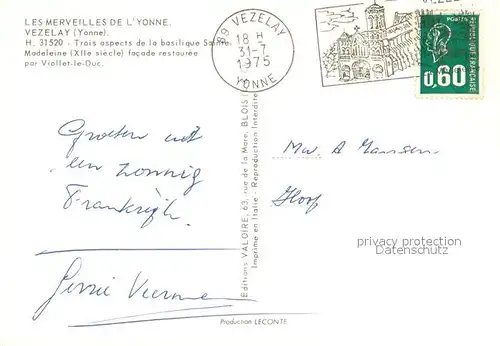 LES MERVEILLES DE L'YONNE.
VEZELAY (Yonne).
H. 31520 - Trois aspects de la basilique Sainte-
Madeleine (XIIe siècle) façade restaurée
par Viollet-le-Duc.
89 VEZELAY
18 H
31-7
1975
YONNE
POSTES
REPUBLIQUE FRANÇAISE
0,60
Groeten uit
een zonnig
Frankrijk.
Mw. A Jansen
privacy protection
Datenschutz
Editions VALOIRE, 63, rue de la Mare, BLOIS
Imprimé en Italie - Reproduction Interdite
Production LECONTE